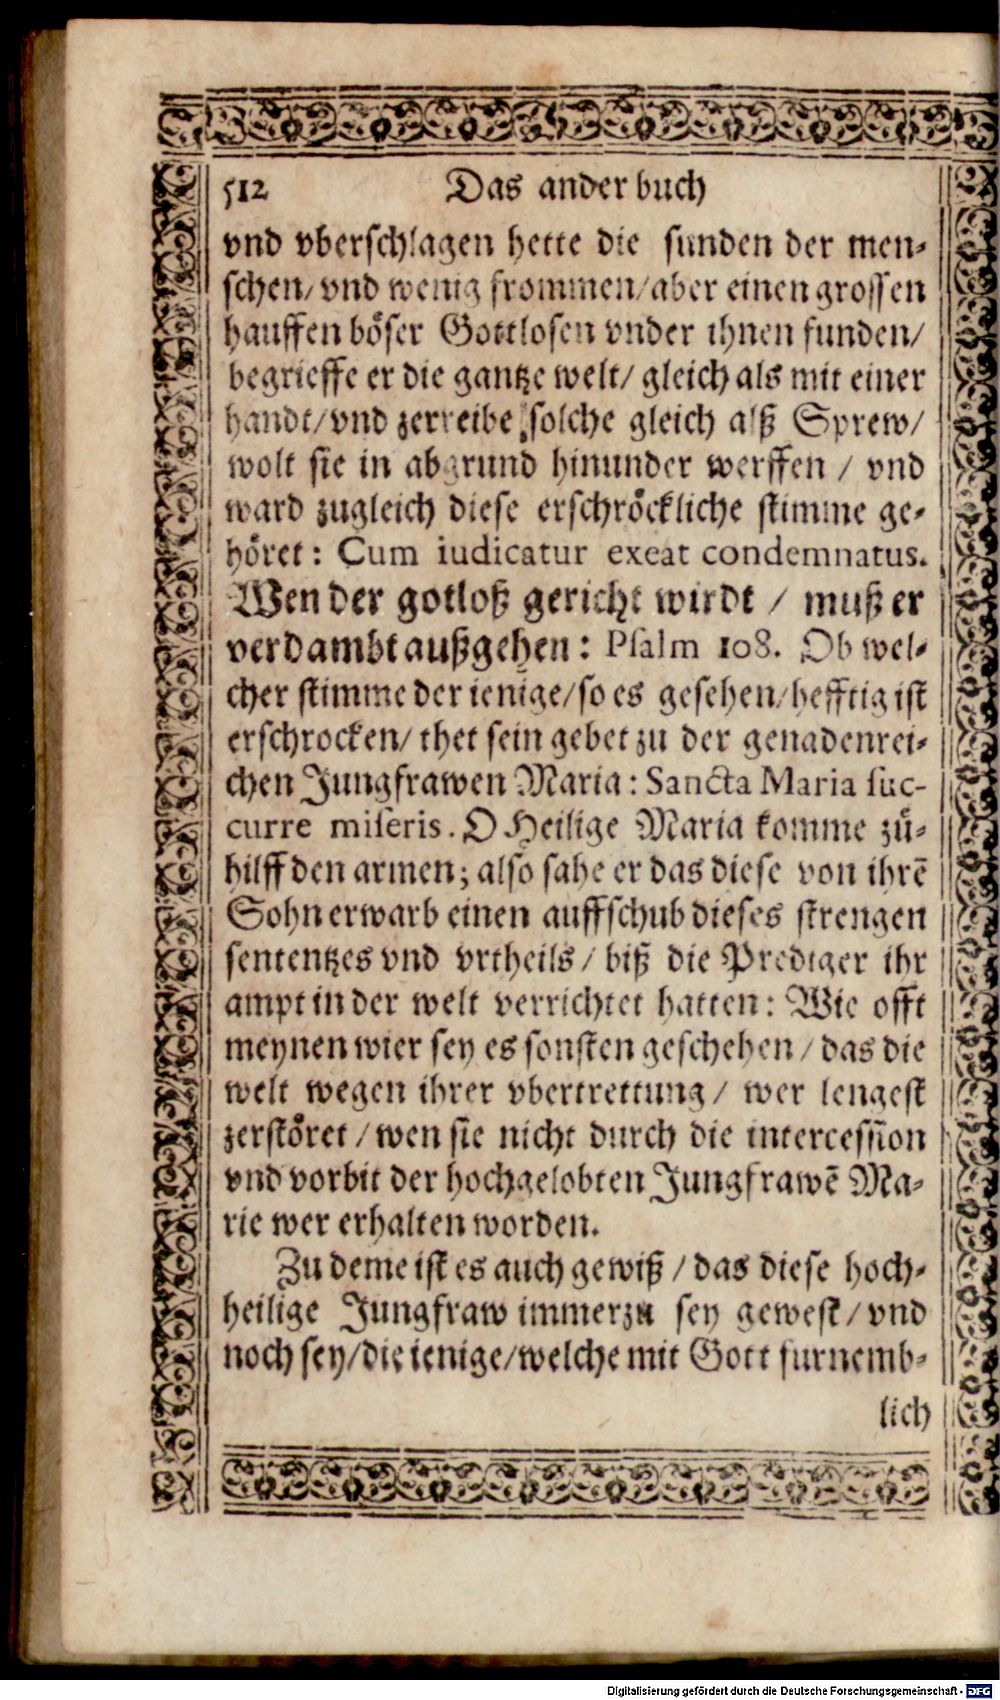 512 Das ander buch
vnd vberschlagen hette die sunden der men-
schen/ vnd wenig frommen/ aber einen grossen
hauffen böser Gottlosen vnder ihnen funden/
begrieffe er die gantze welt/ gleich als mit einer
handt/ vnd zerreibe solche gleich alß Sprew/
wolt sie in abgrund hinunder werffen / vnd
ward zugleich diese erschröckliche stimme ge-
höret: Cum iudicatur exeat condemnatus.
Wen der gotloß gericht wirdt / muß er
verdambt außgehen: Psalm 108. Ob wel-
cher stimme der ienige/ so es gesehen/ hefftig ist
erschrocken/ thet sein gebet zu der genadenrei-
chen Jungfrawen Maria: Sancta Maria suc-
curre miseris. O Heilige Maria komme zů-
hilff den armen; also sahe er das diese von ihrē
Sohn erwarb einen auffschub dieses strengen
sententzes vnd vrtheils / biß die Prediger ihr
ampt in der welt verrichtet hatten: Wie offt
meynen wier sey es sonsten geschehen / das die
welt wegen ihrer vbertrettung / wer lengest
zerstöret / wen sie nicht durch die intercession
vnd vorbit der hochgelobten Jungfrawē Ma-
rie wer erhalten worden.
Zu deme ist es auch gewiß / das diese hoch-
heilige Jungfraw immerzu sey gewest / vnd
noch sey/ die ienige/ welche mit Gott furnemb-
lich
Digitalisierung gefördert durch die Deutsche Forschungsgemeinschaft - DFG